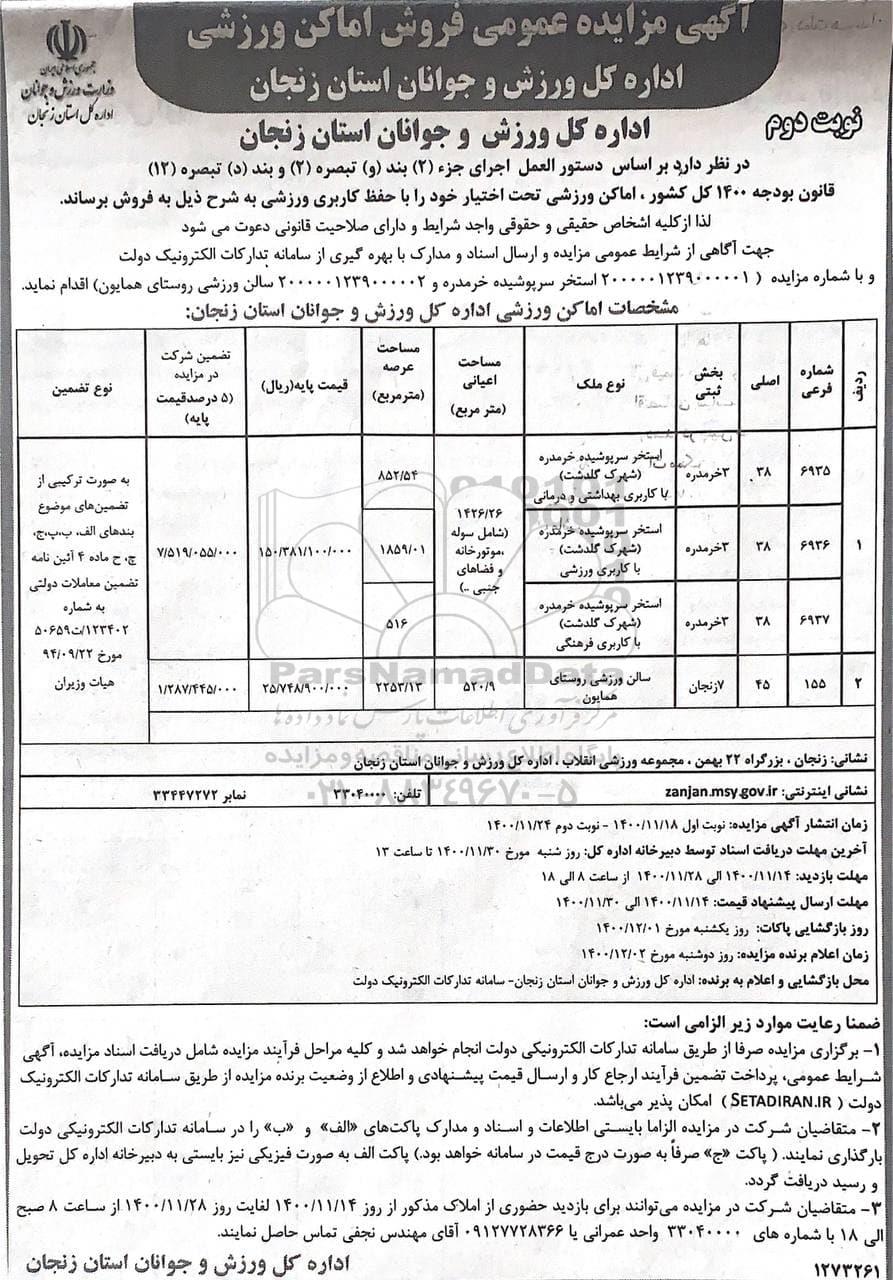 آگهی مزایده عمومی فروش اماکن ورزشی
اداره کل ورزش و جوانان استان زنجان
جمهوری اسلامی ایران
وزارت ورزش و جوانان
اداره کل استان زنجان
نوبت دوم
اداره کل ورزش و جوانان استان زنجان
در نظر دارد بر اساس دستور العمل اجرای جزء (۲) بند (و) تبصره (۲) و بند (د) تبصره (۱۲)
قانون بودجه ۱۴۰۰ کل کشور ، اماکن ورزشی تحت اختیار خود را با حفظ کاربری ورزشی به شرح ذیل به فروش برساند.
لذا از کلیه اشخاص حقیقی و حقوقی واجد شرایط و دارای صلاحیت قانونی دعوت می شود
جهت آگاهی از شرایط عمومی مزایده و ارسال اسناد و مدارک با بهره گیری از سامانه تدارکات الکترونیک دولت
و با شماره مزایده ( ۲۰۰۰۰۰۱۲۳۹۰۰۰۰۰۱ استخر سرپوشیده خرمدره و ۲۰۰۰۰۰۱۲۳۹۰۰۰۰۰۲ سالن ورزشی روستای همایون) اقدام نماید.
مشخصات اماکن ورزشی اداره کل ورزش و جوانان استان زنجان:
ردیف
شماره فرعی
اصلی
بخش ثبتی
نوع ملک
مساحت اعیانی (متر مربع)
مساحت عرصه (مترمربع)
قیمت پایه(ریال)
تضمین شرکت در مزایده (۵ درصدقیمت پایه)
نوع تضمین
۱
۶۹۳۵
۳۸
۳خرمدره
استخر سرپوشیده خرمدره
(شهرک گلدشت)
با کاربری بهداشتی و درمانی
۸۵۲/۵۴
۶۹۳۶
۳۸
۳خرمدره
استخر سرپوشیده خرمدره
(شهرک گلدشت)
با کاربری ورزشی
۱۴۲۶/۲۶
(شامل سوله
،موتورخانه
و فضاهای
جنبی ..)
۱۸۵۹/۰۱
۱۵۰/۳۸۱/۱۰۰/۰۰۰
۷/۵۱۹/۰۵۵/۰۰۰
۶۹۳۷
۳۸
۳خرمدره
استخر سرپوشیده خرمدره
(شهرک گلدشت)
با کاربری فرهنگی
۵۱۶
۲
۱۵۵
۴۵
۷زنجان
سالن ورزشی روستای
همایون
۵۲۰/۹
۲۲۵۳/۱۳
۲۵/۷۴۸/۹۰۰/۰۰۰
۱/۲۸۷/۴۴۵/۰۰۰
به صورت ترکیبی از
تضمین‌های موضوع
بندهای الف، ب،پ،ج،
چ، ح ماده ۴ آئین نامه
تضمین معاملات دولتی
به شماره
۱۲۳۴۰۲/ت۵۰۶۵۹
مورخ ۹۴/۰۹/۲۲
هیات وزیران
ParsNamadData
مرکز فرآوری اطلاعات پارس نماد داده ها
پایگاه اطلاع رسانی مناقصه و مزایده
۰۲۱-۸۸۳۴۹۶۷۰-۵
نشانی: زنجان ، بزرگراه ۲۲ بهمن ، مجموعه ورزشی انقلاب ، اداره کل ورزش و جوانان استان زنجان
نشانی اینترنتی: zanjan.msy.gov.ir
تلفن: ۳۳۰۴۰۰۰۰
نمابر ۳۳۴۴۷۲۷۲
زمان انتشار آگهی مزایده: نوبت اول ۱۴۰۰/۱۱/۱۸ - نوبت دوم ۱۴۰۰/۱۱/۲۴
آخرین مهلت دریافت اسناد توسط دبیرخانه اداره کل: روز شنبه مورخ ۱۴۰۰/۱۱/۳۰ تا ساعت ۱۳
مهلت بازدید: ۱۴۰۰/۱۱/۱۴ الی ۱۴۰۰/۱۱/۲۸ از ساعت ۸ الی ۱۸
مهلت ارسال پیشنهاد قیمت: ۱۴۰۰/۱۱/۱۴ الی ۱۴۰۰/۱۱/۳۰
روز بازگشایی پاکات: روز یکشنبه مورخ ۱۴۰۰/۱۲/۰۱
زمان اعلام برنده مزایده: روز دوشنبه مورخ ۱۴۰۰/۱۲/۰۲
محل بازگشایی و اعلام به برنده: اداره کل ورزش و جوانان استان زنجان- سامانه تدارکات الکترونیک دولت
ضمنا رعایت موارد زیر الزامی است:
۱- برگزاری مزایده صرفا از طریق سامانه تدارکات الکترونیکی دولت انجام خواهد شد و کلیه مراحل فرآیند مزایده شامل دریافت اسناد مزایده، آگهی
شرایط عمومی، پرداخت تضمین فرآیند ارجاع کار و ارسال قیمت پیشنهادی و اطلاع از وضعیت برنده مزایده از طریق سامانه تدارکات الکترونیک
دولت ( SETADIRAN.IR ) امکان پذیر می‌باشد.
۲- متقاضیان شرکت در مزایده الزاما بایستی اطلاعات و اسناد و مدارک پاکت‌های «الف» و «ب» را در سامانه تدارکات الکترونیکی دولت
بارگذاری نمایند. ( پاکت «ج» صرفاً به صورت درج قیمت در سامانه خواهد بود.) پاکت الف به صورت فیزیکی نیز بایستی به دبیرخانه اداره کل تحویل
و رسید دریافت گردد.
۳- متقاضیان شرکت در مزایده می‌توانند برای بازدید حضوری از املاک مذکور از روز ۱۴۰۰/۱۱/۱۴ لغایت روز ۱۴۰۰/۱۱/۲۸ از ساعت ۸ صبح
الی ۱۸ با شماره های ۳۳۰۴۰۰۰۰ واحد عمرانی یا ۰۹۱۲۷۷۲۸۳۶۶ آقای مهندس نجفی تماس حاصل نمایند.
۱۲۷۳۲۶۱
اداره کل ورزش و جوانان استان زنجان